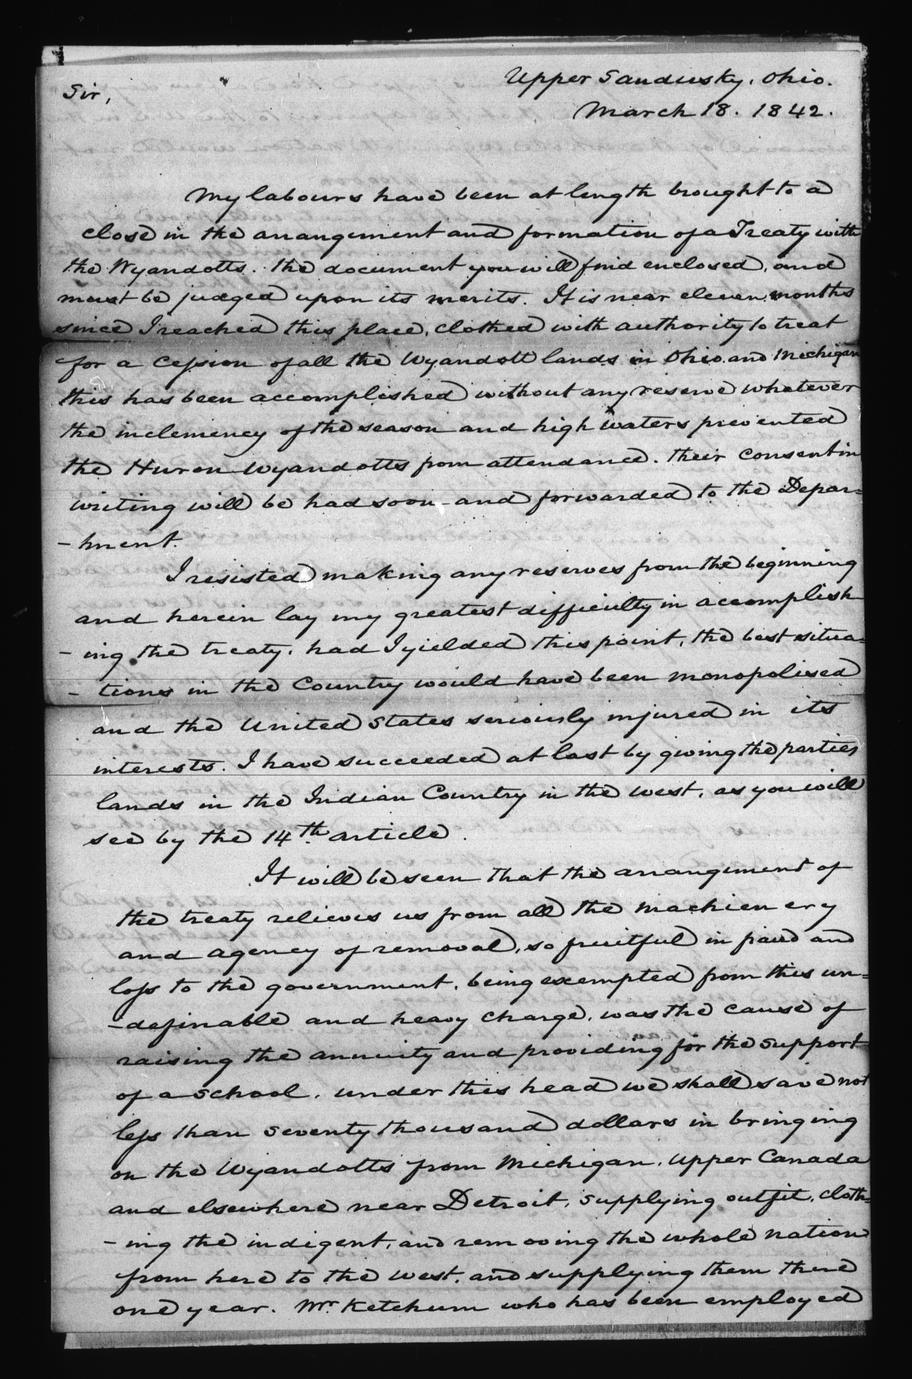 Upper Sandusky, Ohio.
Sir,
March 18. 1842.
My labours have been at length brought to a
close in the arrangement and formation of a Treaty with
the Wyandotts. the document you will find enclosed, and
must be judged upon its merits. It is near eleven months
since I reached this place, clothed with authority to treat
for a cession of all the Wyandott lands in Ohio and Michigan
this has been accomplished without any reserve whatever
the inclemency of the season and high waters prevented
the Huron Wyandotts from attendance. their consent in
writing will be had soon and forwarded to the Depar-
-tment.
I resisted making any reserves from the beginning
and herein lay my greatest difficulty in accomplish
-ing the treaty. had I yielded this point, the best situa-
-tions in the Country would have been monopolised
and the United States seriously injured in its
interests. I have succeeded at last by giving the parties
lands in the Indian Country in the west, as you will
see by the 14th article.
It will be seen that the arrangement of
the treaty relieves us from all the machienery
and agency of removal, so fruitful in fraud and
loss to the government. being exempted from this un-
-definable and heavy charge, was the cause of
raising the annuity and providing for the support
of a school. under this head we shall save not
less than seventy thousand dollars in bringing
on the Wyandotts from Michigan, Upper Canada
and elsewhere near Detroit, supplying outfit, cloth-
-ing the indigent, and removing the whole nation
from here to the west, and supplying them there
one year. Mr. Ketchum who has been employed